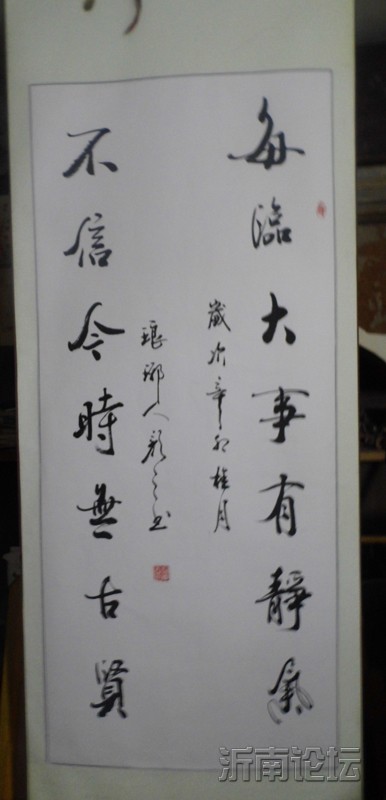 每臨大事有靜氣
歲次辛卯桂月
琅琊人之书
不信今時無古賢
沂南论坛